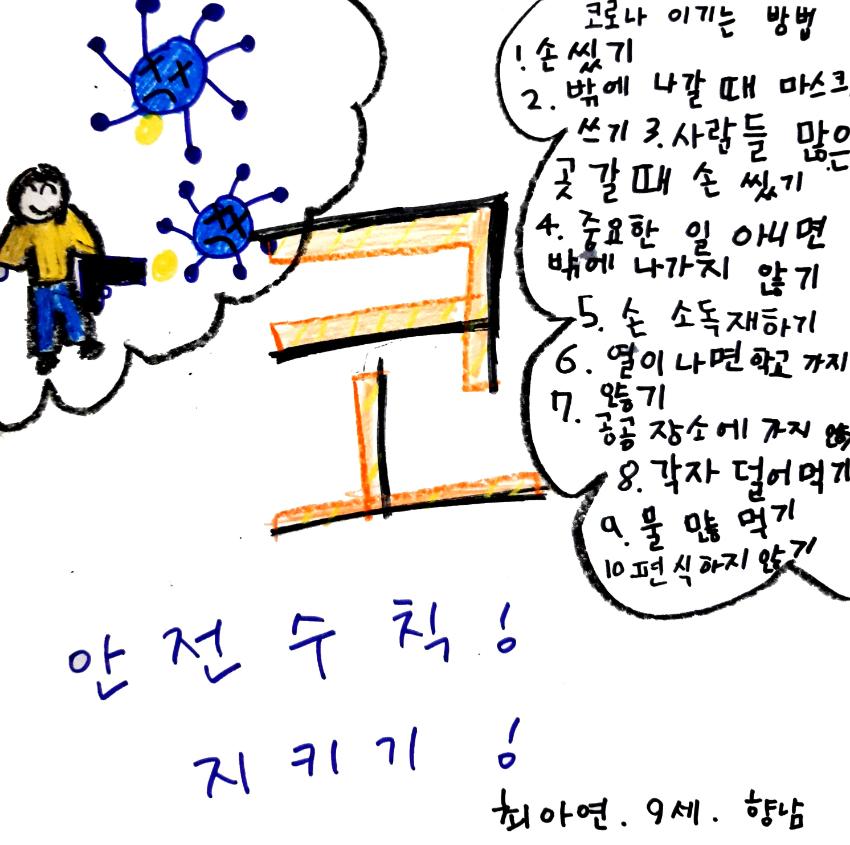 코로나 이기는 방법
1. 손 씻기
2. 밖에 나갈 때 마스크
쓰기 3. 사람들 많은
곳 갈 때 손 씻기
4. 중요한 일 아니면
밖에 나가지 않기
5. 손 소독재하기
6. 열이 나면 학교 가지
않기
7. 공공 장소에 가지
8. 각자 덜어먹기
9. 물 많 먹기
10 편식하지 않기
코
안전수칙!
지키기!
최아연. 9세. 향남